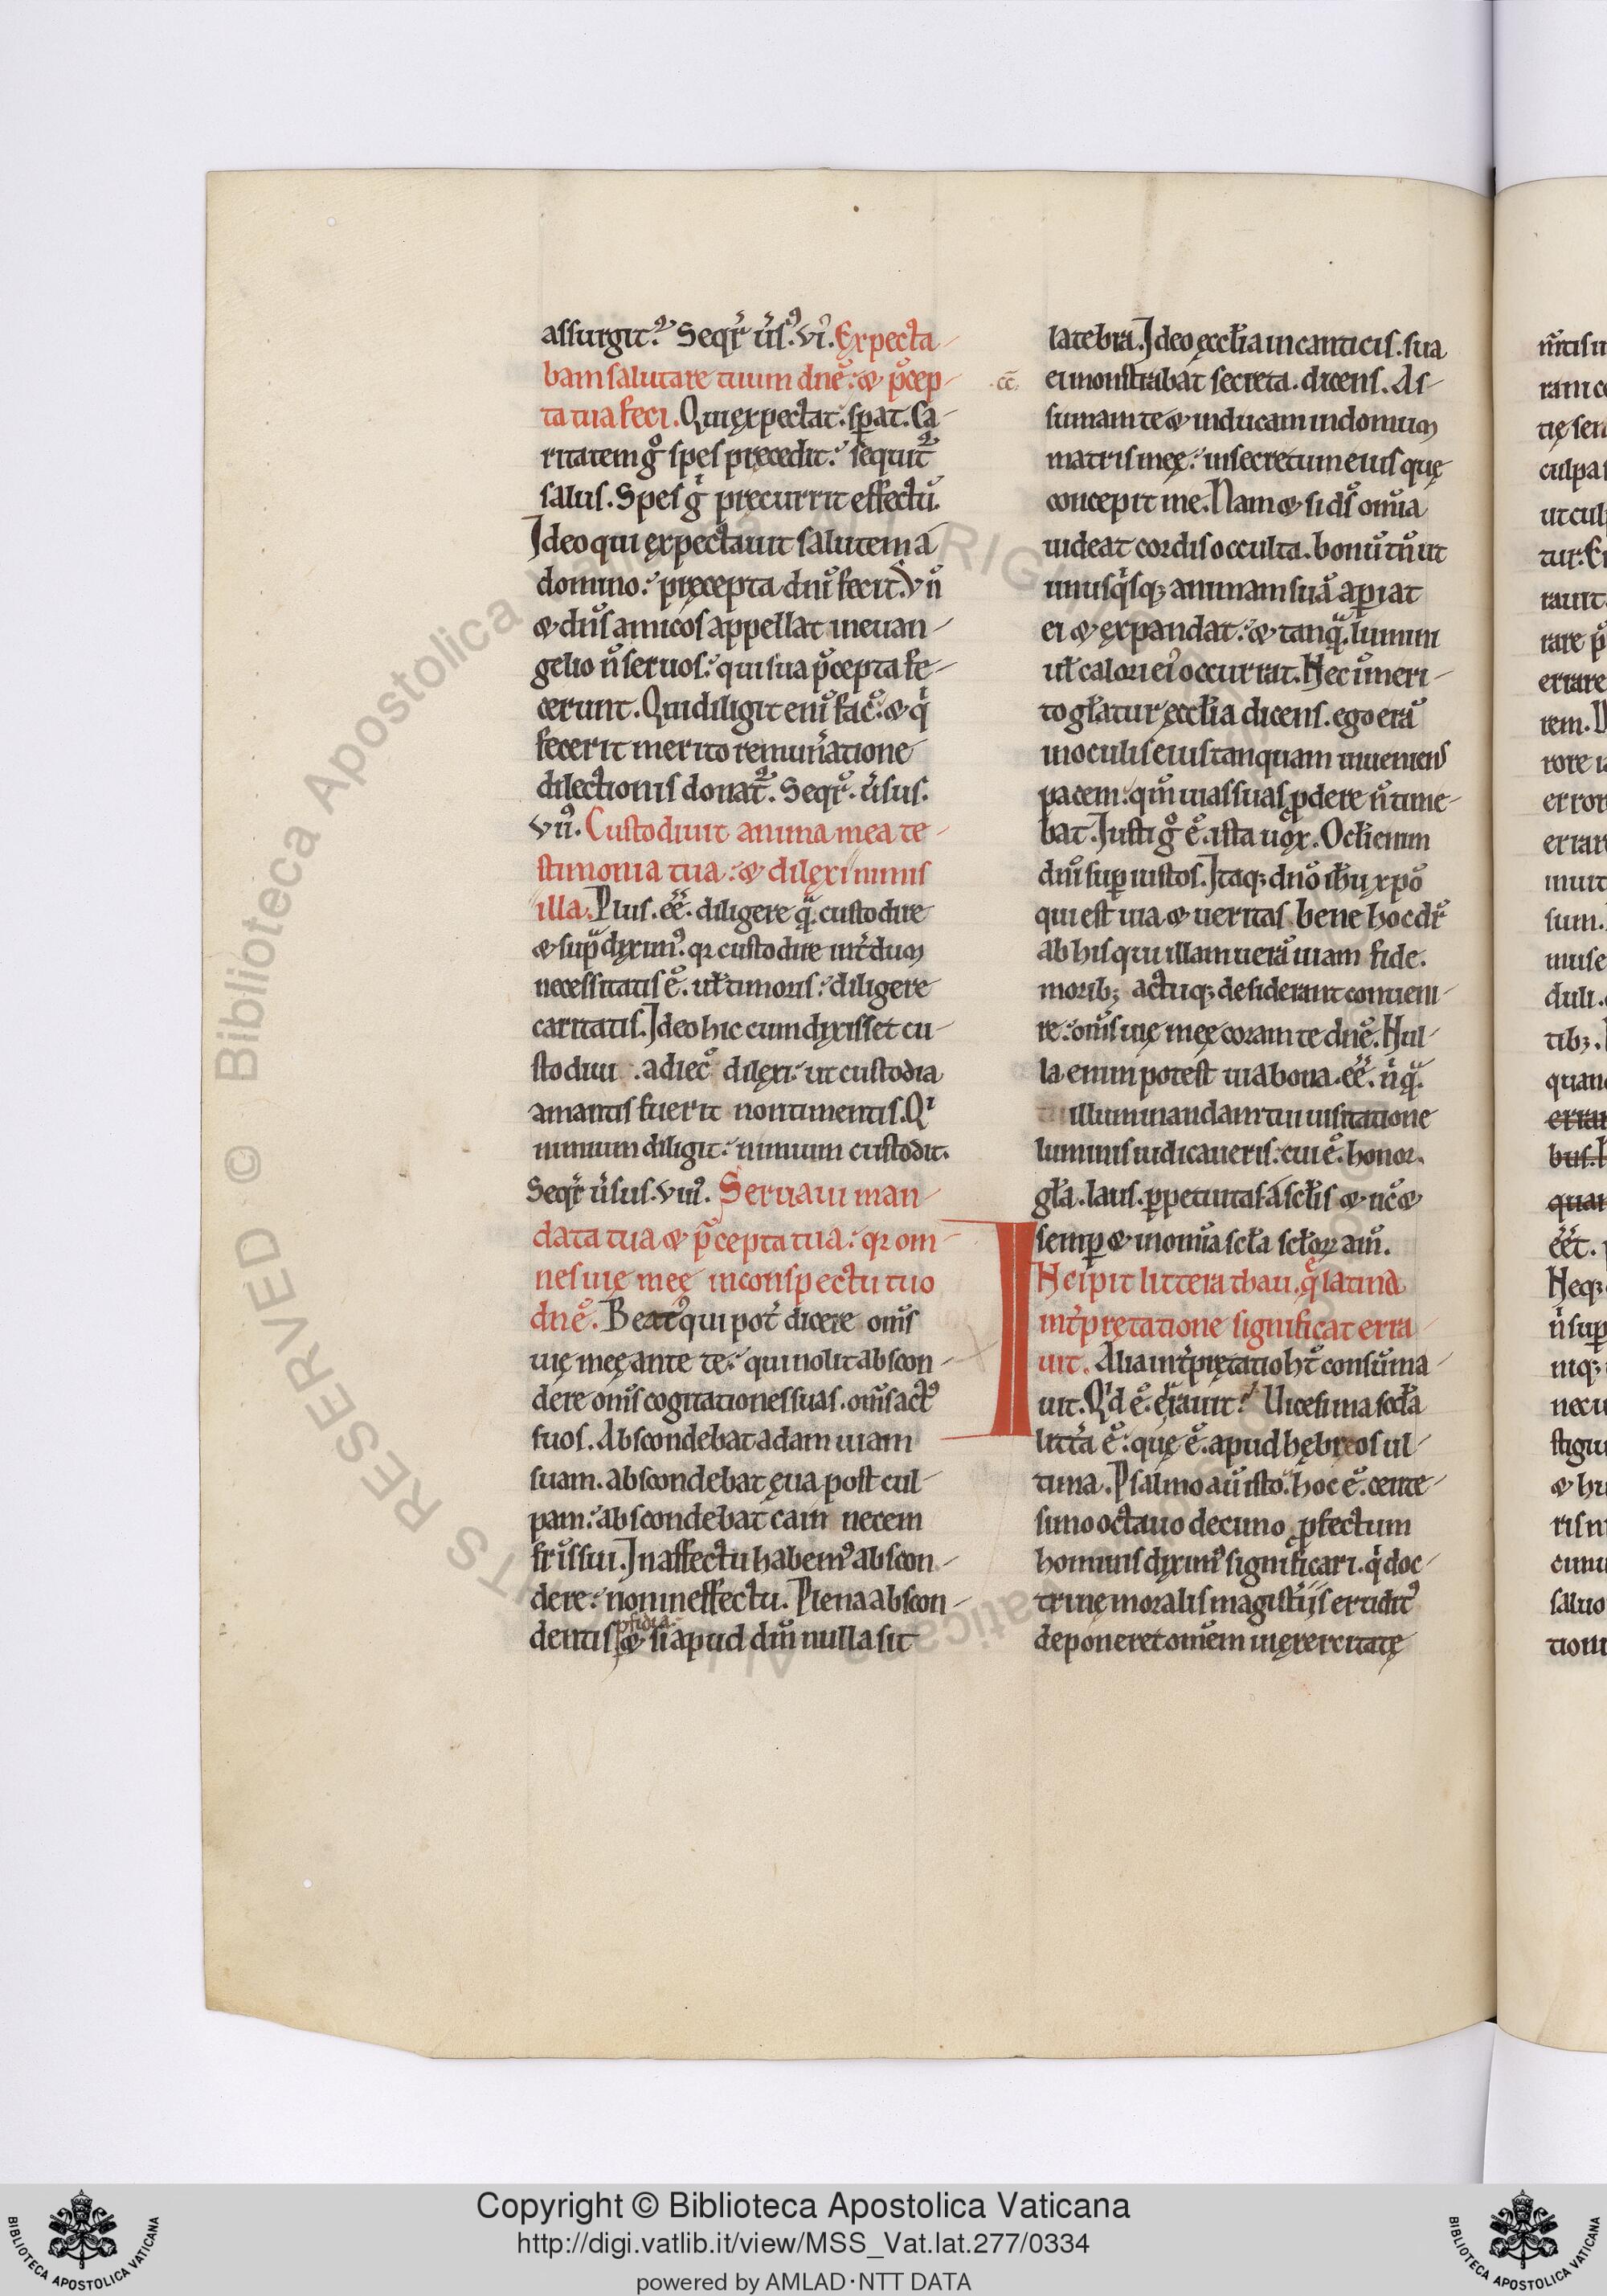 assurgitᷣ. Seqr̄ ūs᷒. vi. Expecta-
bam salutare tuum dnē. & p̄cep-
ta tua feci. Qui expectat. sꝑat. Ca-
ritatem gͦ spes precedit. sequitᷣ
salus. Spes gͥ precurrit effectū.
Ideo qui expectauit salutem a
domino. precepta dnī fecit. Vn̄
& dn̄s amicos appellat in euan-
gelio n̄ seruos. qui sua p̄cepta fe-
cerunt. Qui diligit enī fac̄. & qͥ
fecerit merito remun̄atione
dilectionis donatᷣ. Seqr̄. ūsus.
vii. Custodiuit anima mea te-
stimonia tua. & dilexi nimis
illa. Plus. eē. diligere qͣ̄. custodire
& sup̄ dixim᷒. qꝛ custodire int̄dum
necessitatis ē. uł timoris. diligere
caritatis. Ideo hic cum dixisset cu-
stodiui. adiec̄ dilexi. ut custodia
amantis fuerit non timentis. Qͥ
nimium diligit. nimium custodit.
Seqr̄ ūsus. viii. Seruaui man-
data tua & p̄cepta tua. qꝛ om-
nes uię meę in conspectu tuo
dnē. Beat᷒ qui pot̄ dicere om̄s
uię meę ante te. qui nolit abscon-
dere om̄s cogitationes suas. om̄s act᷒
suos. Abscondebat adam uiam
suam. abscondebat ęua post cul-
pam. abscondebat cain necem
fr̄is sui. In affectu habem᷒ abscon-
dere. non in effectu. Plena abscon-
ꝑfidia.
dentis & si apud dm̄ nulla sit
latebra. Ideo ęcclīa in canticis. sua
.cc̄. ei monstrabat secreta. dicens. As-
sumam te & inducam in domum
matris meę. in secretum eius quę
concepit me. Nam & si ds̄ om̄ia
uideat cordis occulta. bonū tn̄ ut
unusqͥsqꝫ animam suā aꝑiat
ei & expandat. & tanqͣ̄. lumini
uł calori ei occurrat. Hec ū meri-
to głatur ęcclīa dicens. ego erā
in oculis eius tanquam inueniens
pacem. qm̄ uias suas ꝓdere n̄ time-
bat. Iusti gͦ ē. ista uox. Ocłi enim
dnī suꝑ iustos. Itaqꝫ dnō ihū xpō
qui est uia & ueritas bene hoc dr̄
ab his qui illam uerā uiam fide.
moribꝫ actuqꝫ desiderant conueni-
re. om̄s uię meę coram te dnē. Nul-
la enim potest uia bona. eē. n̄ qͣ̄.
tu illuminandam tui uisitatione
luminis iudicaueris. cui ē. honor.
gła. laus. ꝑpetuitas a scłis & nc̄ &
semꝑ & in om̄ia scła scłoꝝ am̄.
Incipit littera thau. qͣ latina
int̄pretatione significat erra-
uit. Alia int̄pretatio ht̄ consūma-
uit. Qͥd ē. ęrrauit. Uicesima scd̄a
litt̄a ē. quę ē. apud hębreos ul-
tima. Psalmo aū isto. hoc ē. cente-
simo octauo decimo ꝓfectum
hominis dixim᷒ significari. qͥ doc-
trinę moralis magist̄iis erudit᷒
deponeret omēm inęxercitatę